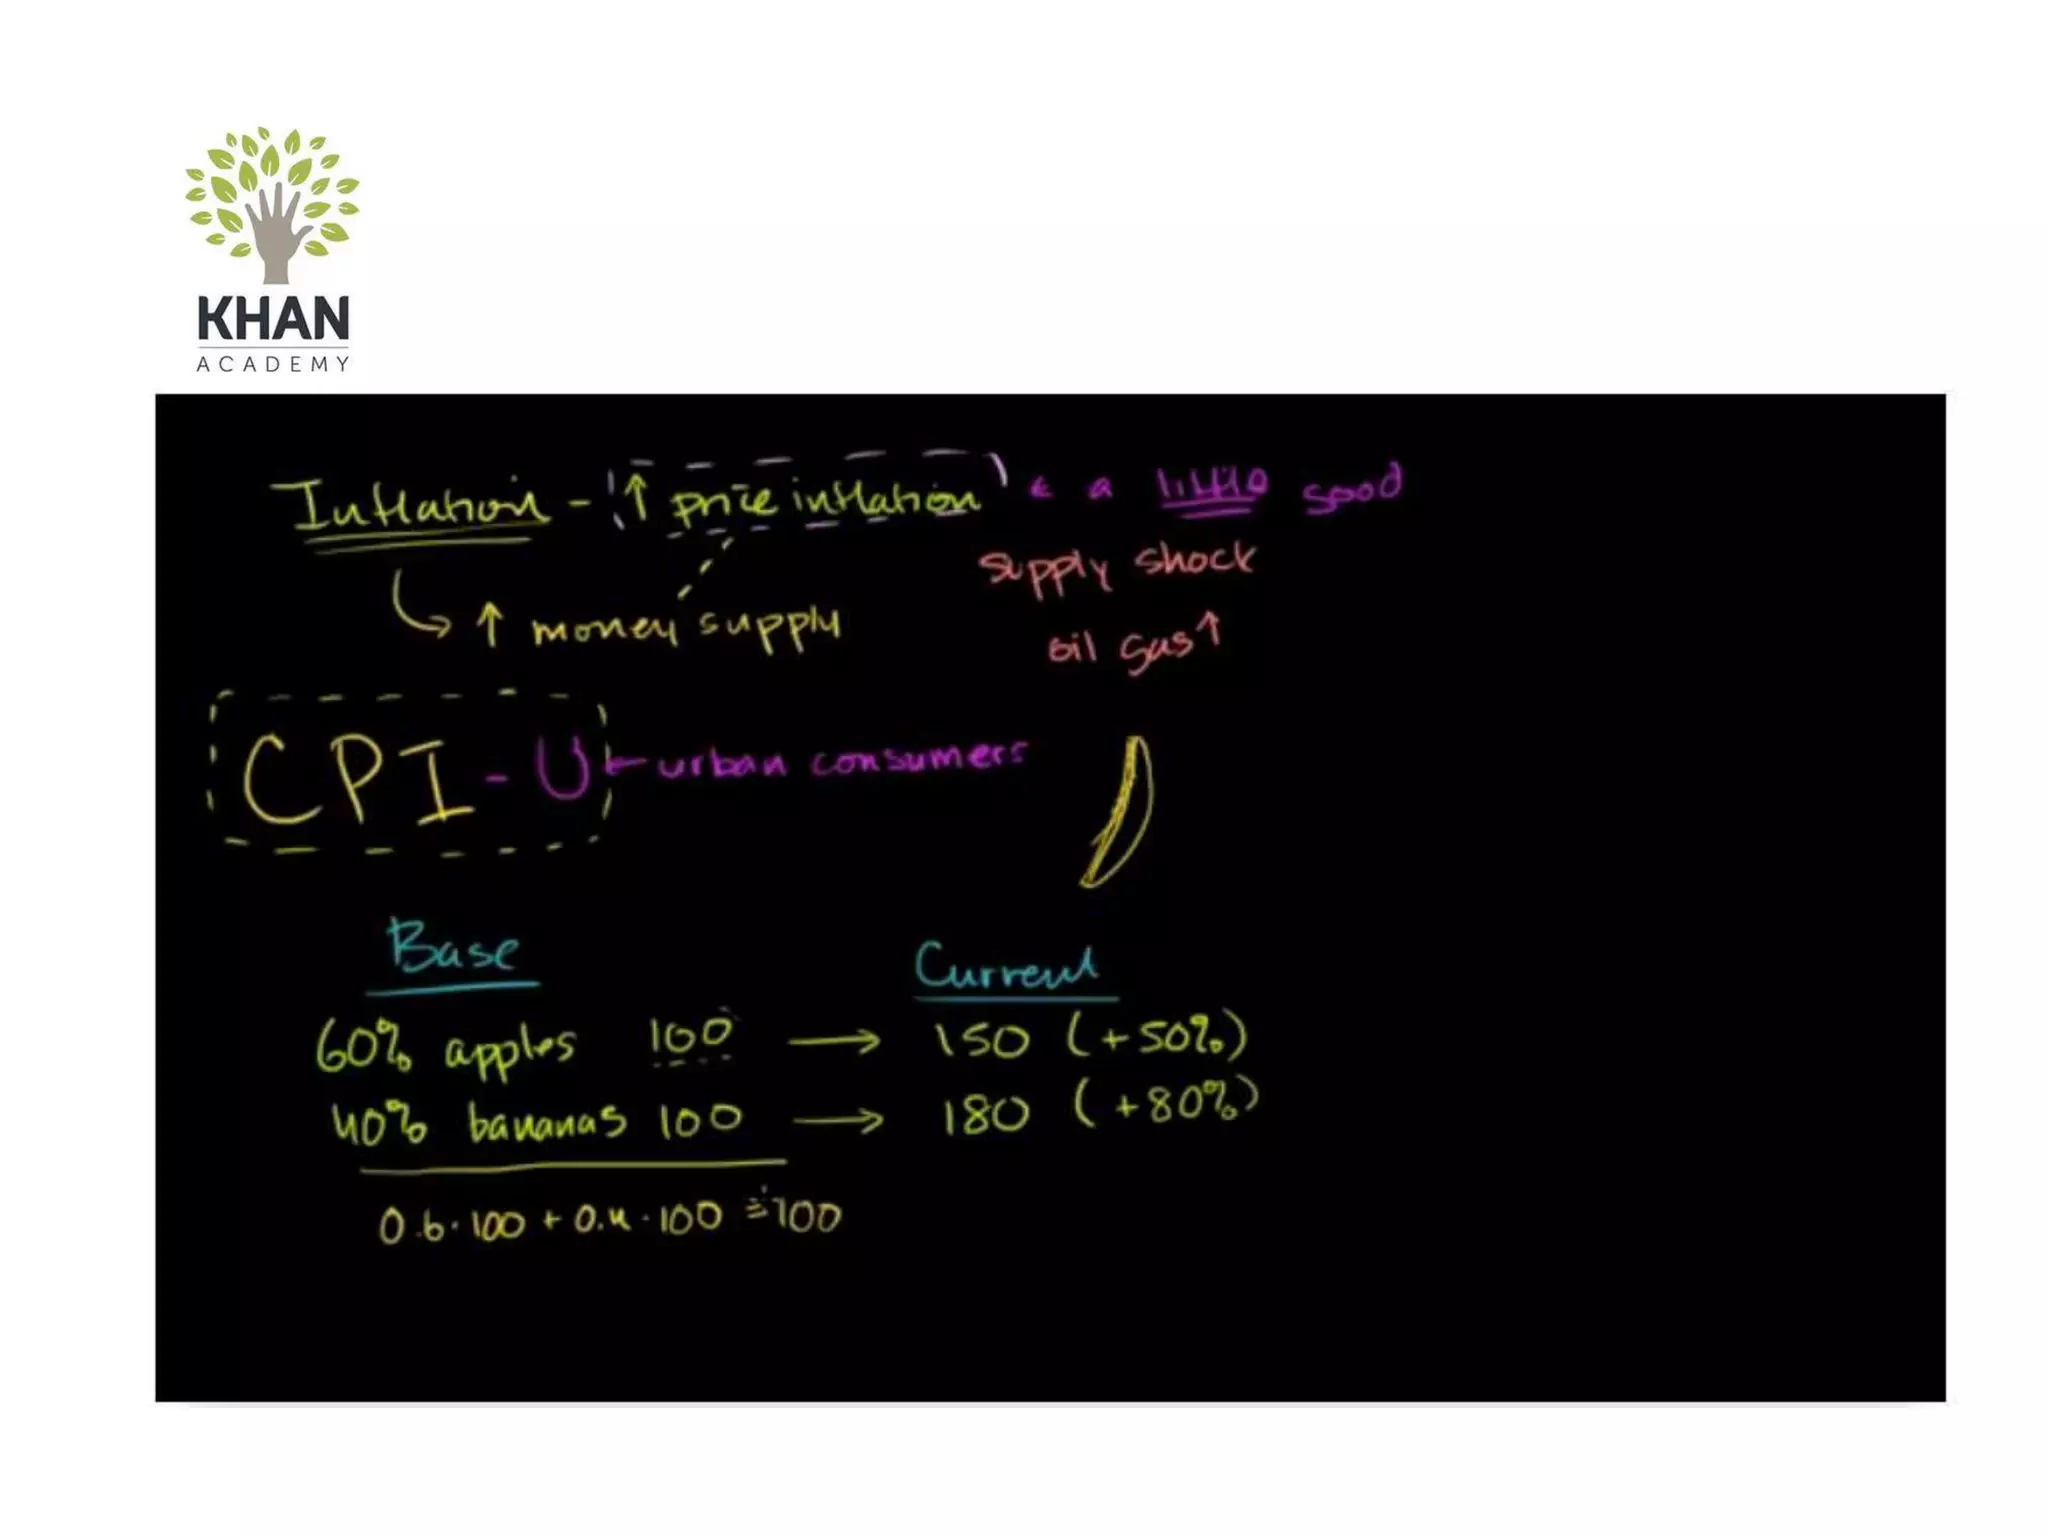 KHAN
ACADEMY
Inflation - ↑ price inflation ← a little good
supply shock
↑ money supply
oil gas ↑
CPI - U ← urban consumers
Base
Current
60% apples 100 → 150 (+50%)
40% bananas 100 → 180 (+80%)
0.6·100 + 0.4·100 = 100